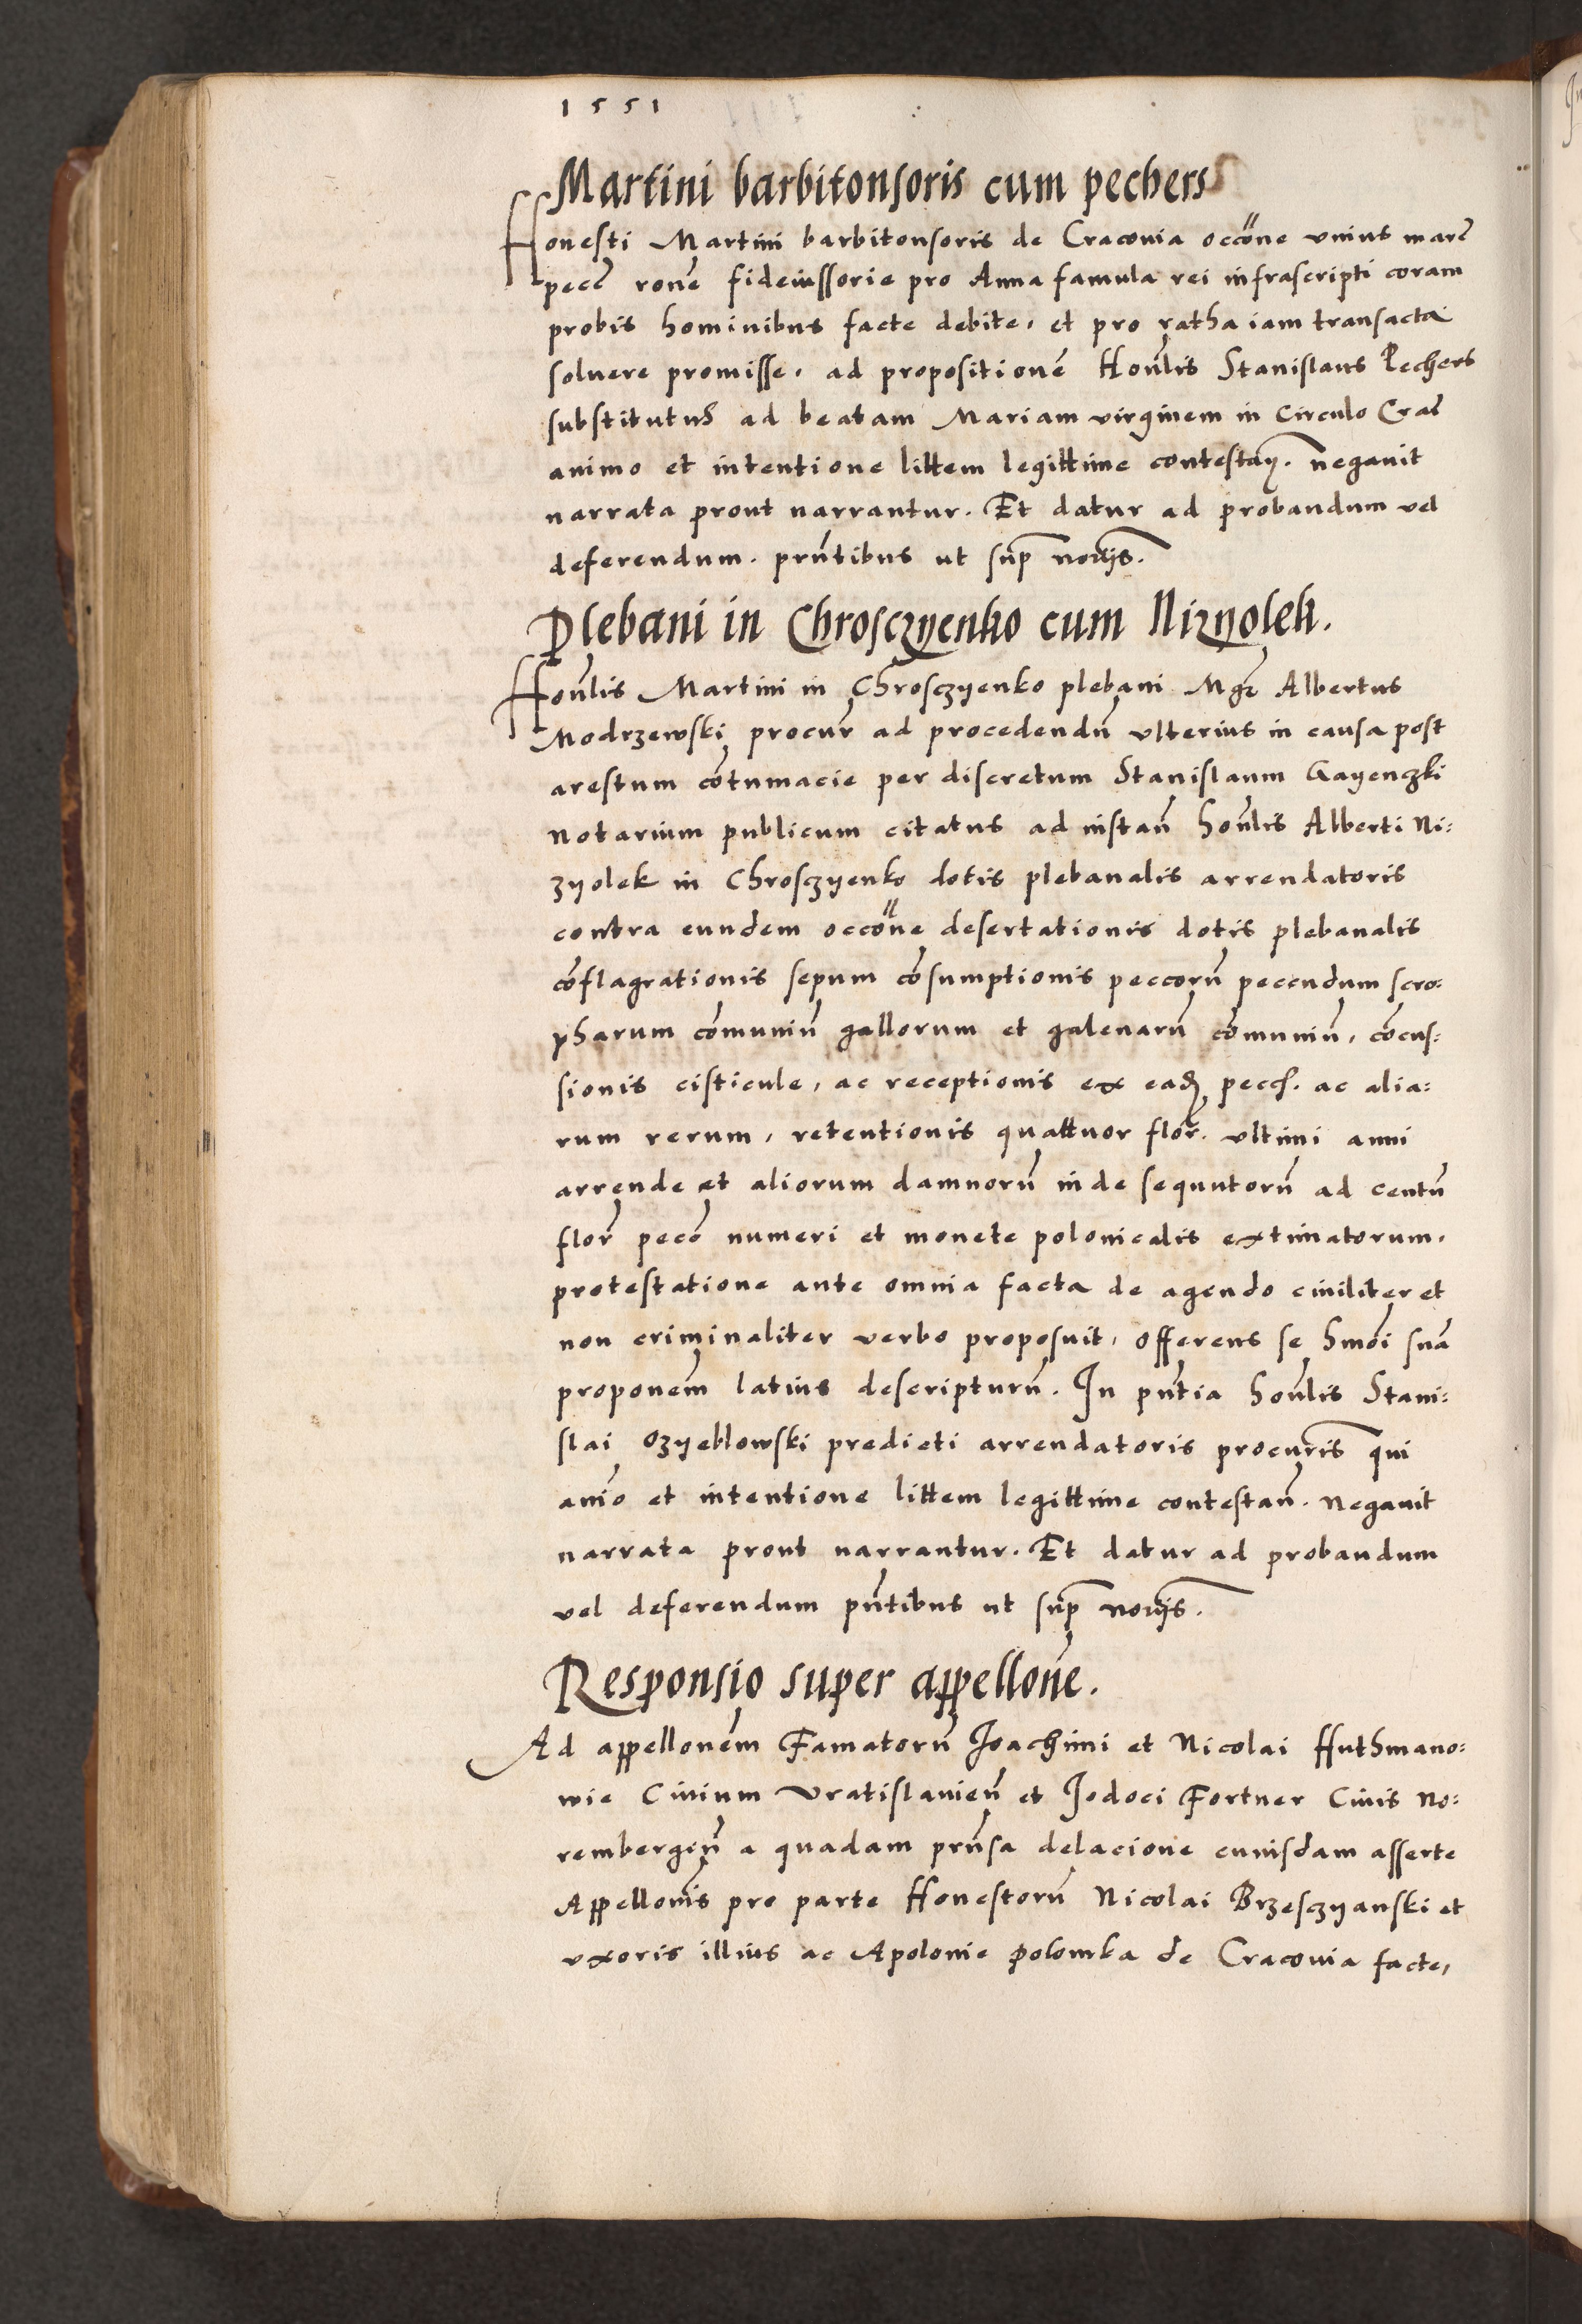 1551
Martini barbitonsoris cum pechers
Honesti Martini barbitonsoris de Cracovia occõne vnius marc̃
pecc̃ ronẽ fideiussorie pro Anna famula rei infrascripti coram
probis hominibus facte debite, et pro ratha iam transacta
soluere promisse, ad propositionẽ Hoñlis Stanislaus Pechers
substitutus ad beatam Mariam virginem in Circulo Crac̃
animo et intentione littem legittime contestañ. negauit
narrata prout narrantur. Et datur ad probandum vel
deferendum. prñtibus ut sup̃ nor̃ijs.
Plebani in Chrosczyenko cum Nizyolek.
Hoñlis Martini in Chrosczyenko plebani Mgr̃ Albertus
Modrzewski procur̃ ad procedendũ vlterius in causa post
arestum cõtumacie per discretum Stanislaum Gayenczki
notarium publicum citatus ad instañ hoñlis Alberti Ni=
zyolek in Chrosczyenko dotis plebanalis arrendatoris
contra eundem occõne desertationis dotis plebanalis
cõflagrationis sepum cõsumptionis peccorũ peccudum scro=
pharum cõmuniũ gallorum et galenarũ cõmuniũ, cõcus=
sionis cisticule, ac receptionis ex eadʒ pecc̃. ac alia=
rum rerum, retentionis quattuor flor̃. vltimi anni
arrende et aliorum damnorũ inde sequutorũ ad centũ
flor̃ pecc̃ numeri et monete polonicalis extimatorum.
protestatione ante omnia facta de agendo ciuiliter et
non criminaliter verbo proposuit, offerens se hmõi suã
proponẽm latius descripturũ. In pñtia hoñlis Stani=
slai Ozyeblowski predicti arrendatoris procuris̃ qui
anĩo et intentione littem legittime contestañ. negauit
narrata prout narrantur. Et datur ad probandum
vel deferendum pñtibus ut sup̃ nor̃ijs.
Responsio super appellonẽ.
Ad appellonẽm Famatorũ Joachimi et Nicolai Huthmano=
wie Ciuium Vratislauieñ et Jodoci Fortner Ciuis No=
rembergeñ a quadam prñsa delacione cuiusdam asserte
Appellonĩs pro parte Honestorũ Nicolai Brzesczyanski et
vxoris illius ac Apolonie polomka de Cracouia facte,